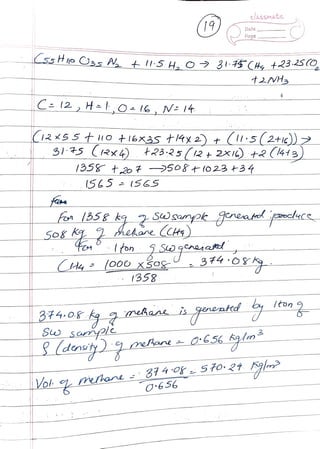 19
classmate
Date
Page
C55 H110 O35 N2 + 11.5 H2O → 31.75 CH4 + 23.25 CO2
+ 2NH3
C = 12, H = 1, O = 16, N = 14
(12×55 + 110 + 16×35 + 14×2) + (11.5(2+16)) →
31.75 (12×4) + 23.25 (12 + 2×16) + 2 (14+3)
1358 + 207 → 508 + 1023 + 34
1565 = 1565
For 1358 kg of SW sample generated produce
508 kg of methane (CH4)
For 1 ton of SW generated,
CH4 = 1000 × 508 = 374.08 kg
1358
374.08 kg of methane is generated by 1 ton of
SW sample
ρ (density) of methane = 0.656 kg/m3
Vol. of methane = 374.08 = 570.24 kg/m3
0.656